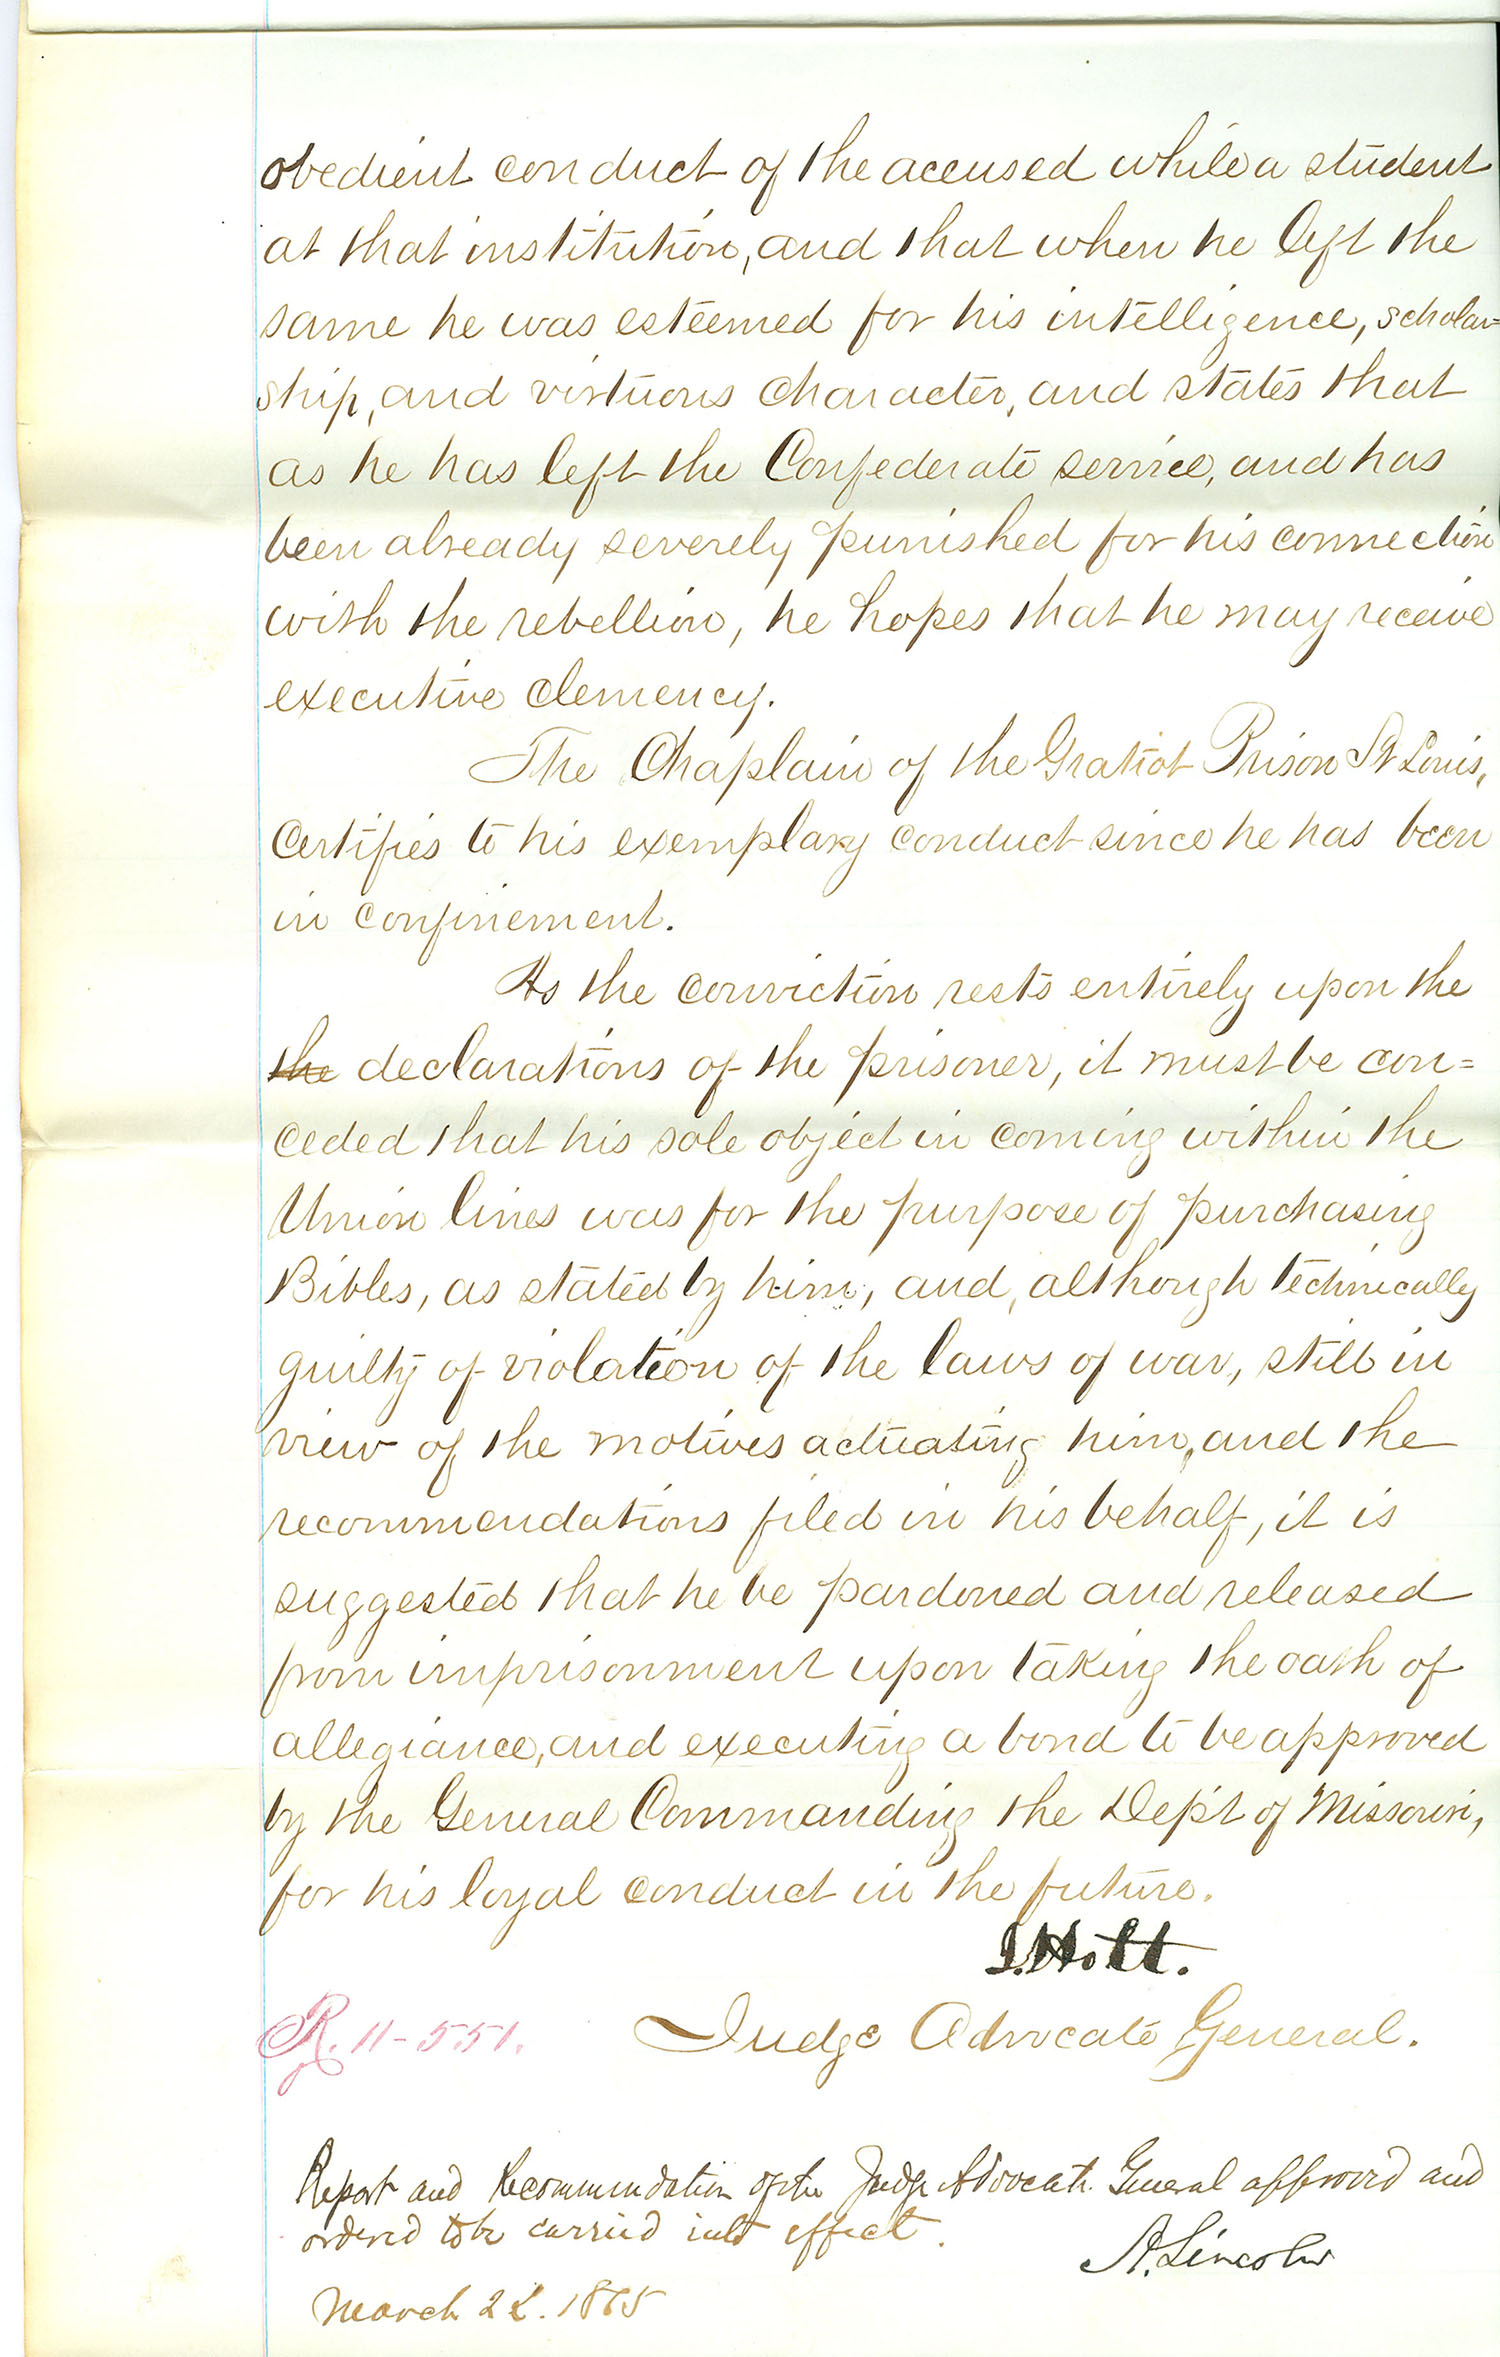 obedient conduct of the accused while a student
at that institution, and that when he left the
same he was esteemed for his intelligence, scholar=
ship, and virtuous character, and states that
as he has left the Confederate service, and has
been already severely punished for his connection
with the rebellion, he hopes that he may receive
executive clemency.
The Chaplain of the Gratiot Prison St Louis,
certifies to his exemplary conduct since he has been
in confinement.
As the conviction rests entirely upon the
the declarations of the prisoner, it must be con=
ceded that his sole object in coming within the
Union lines was for the purpose of purchasing
Bibles, as stated by him, and, although technically
guilty of violation of the laws of war, still in
view of the motives actuating him, and the
recommendations filed in his behalf, it is
suggested that he be pardoned and released
from imprisonment upon taking the oath of
allegiance, and executing a bond to be approved
by the General Commanding the Dep't of Missouri,
for his loyal conduct in the future.
J. Holt.
R. 11-551.
Judge Advocate General.
Report and Recommendation of the Judge Advocate General approved and
ordered to be carried into effect.
A. Lincoln
March 1865